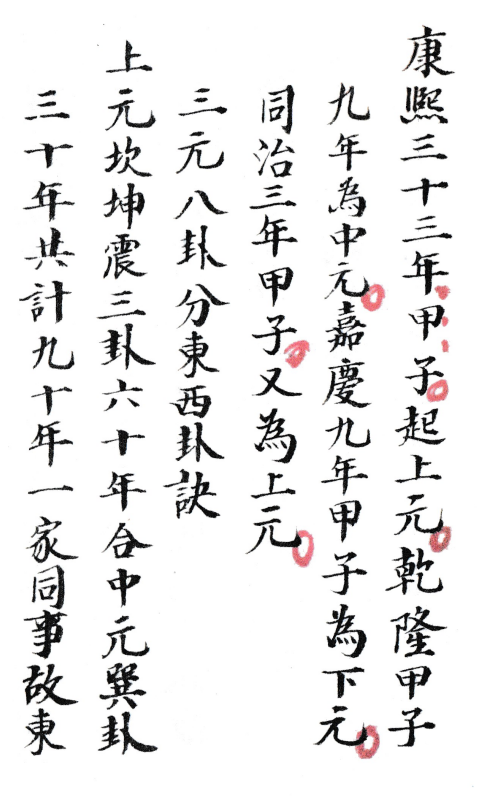 康熙三十三年甲子起上元乾隆甲子
九年為中元嘉慶九年甲子為下元
同治三年甲子又為上元
三元八卦分東西卦訣
上元坎坤震三卦六十年合中元巽卦
三十年共計九十年一家同事故東